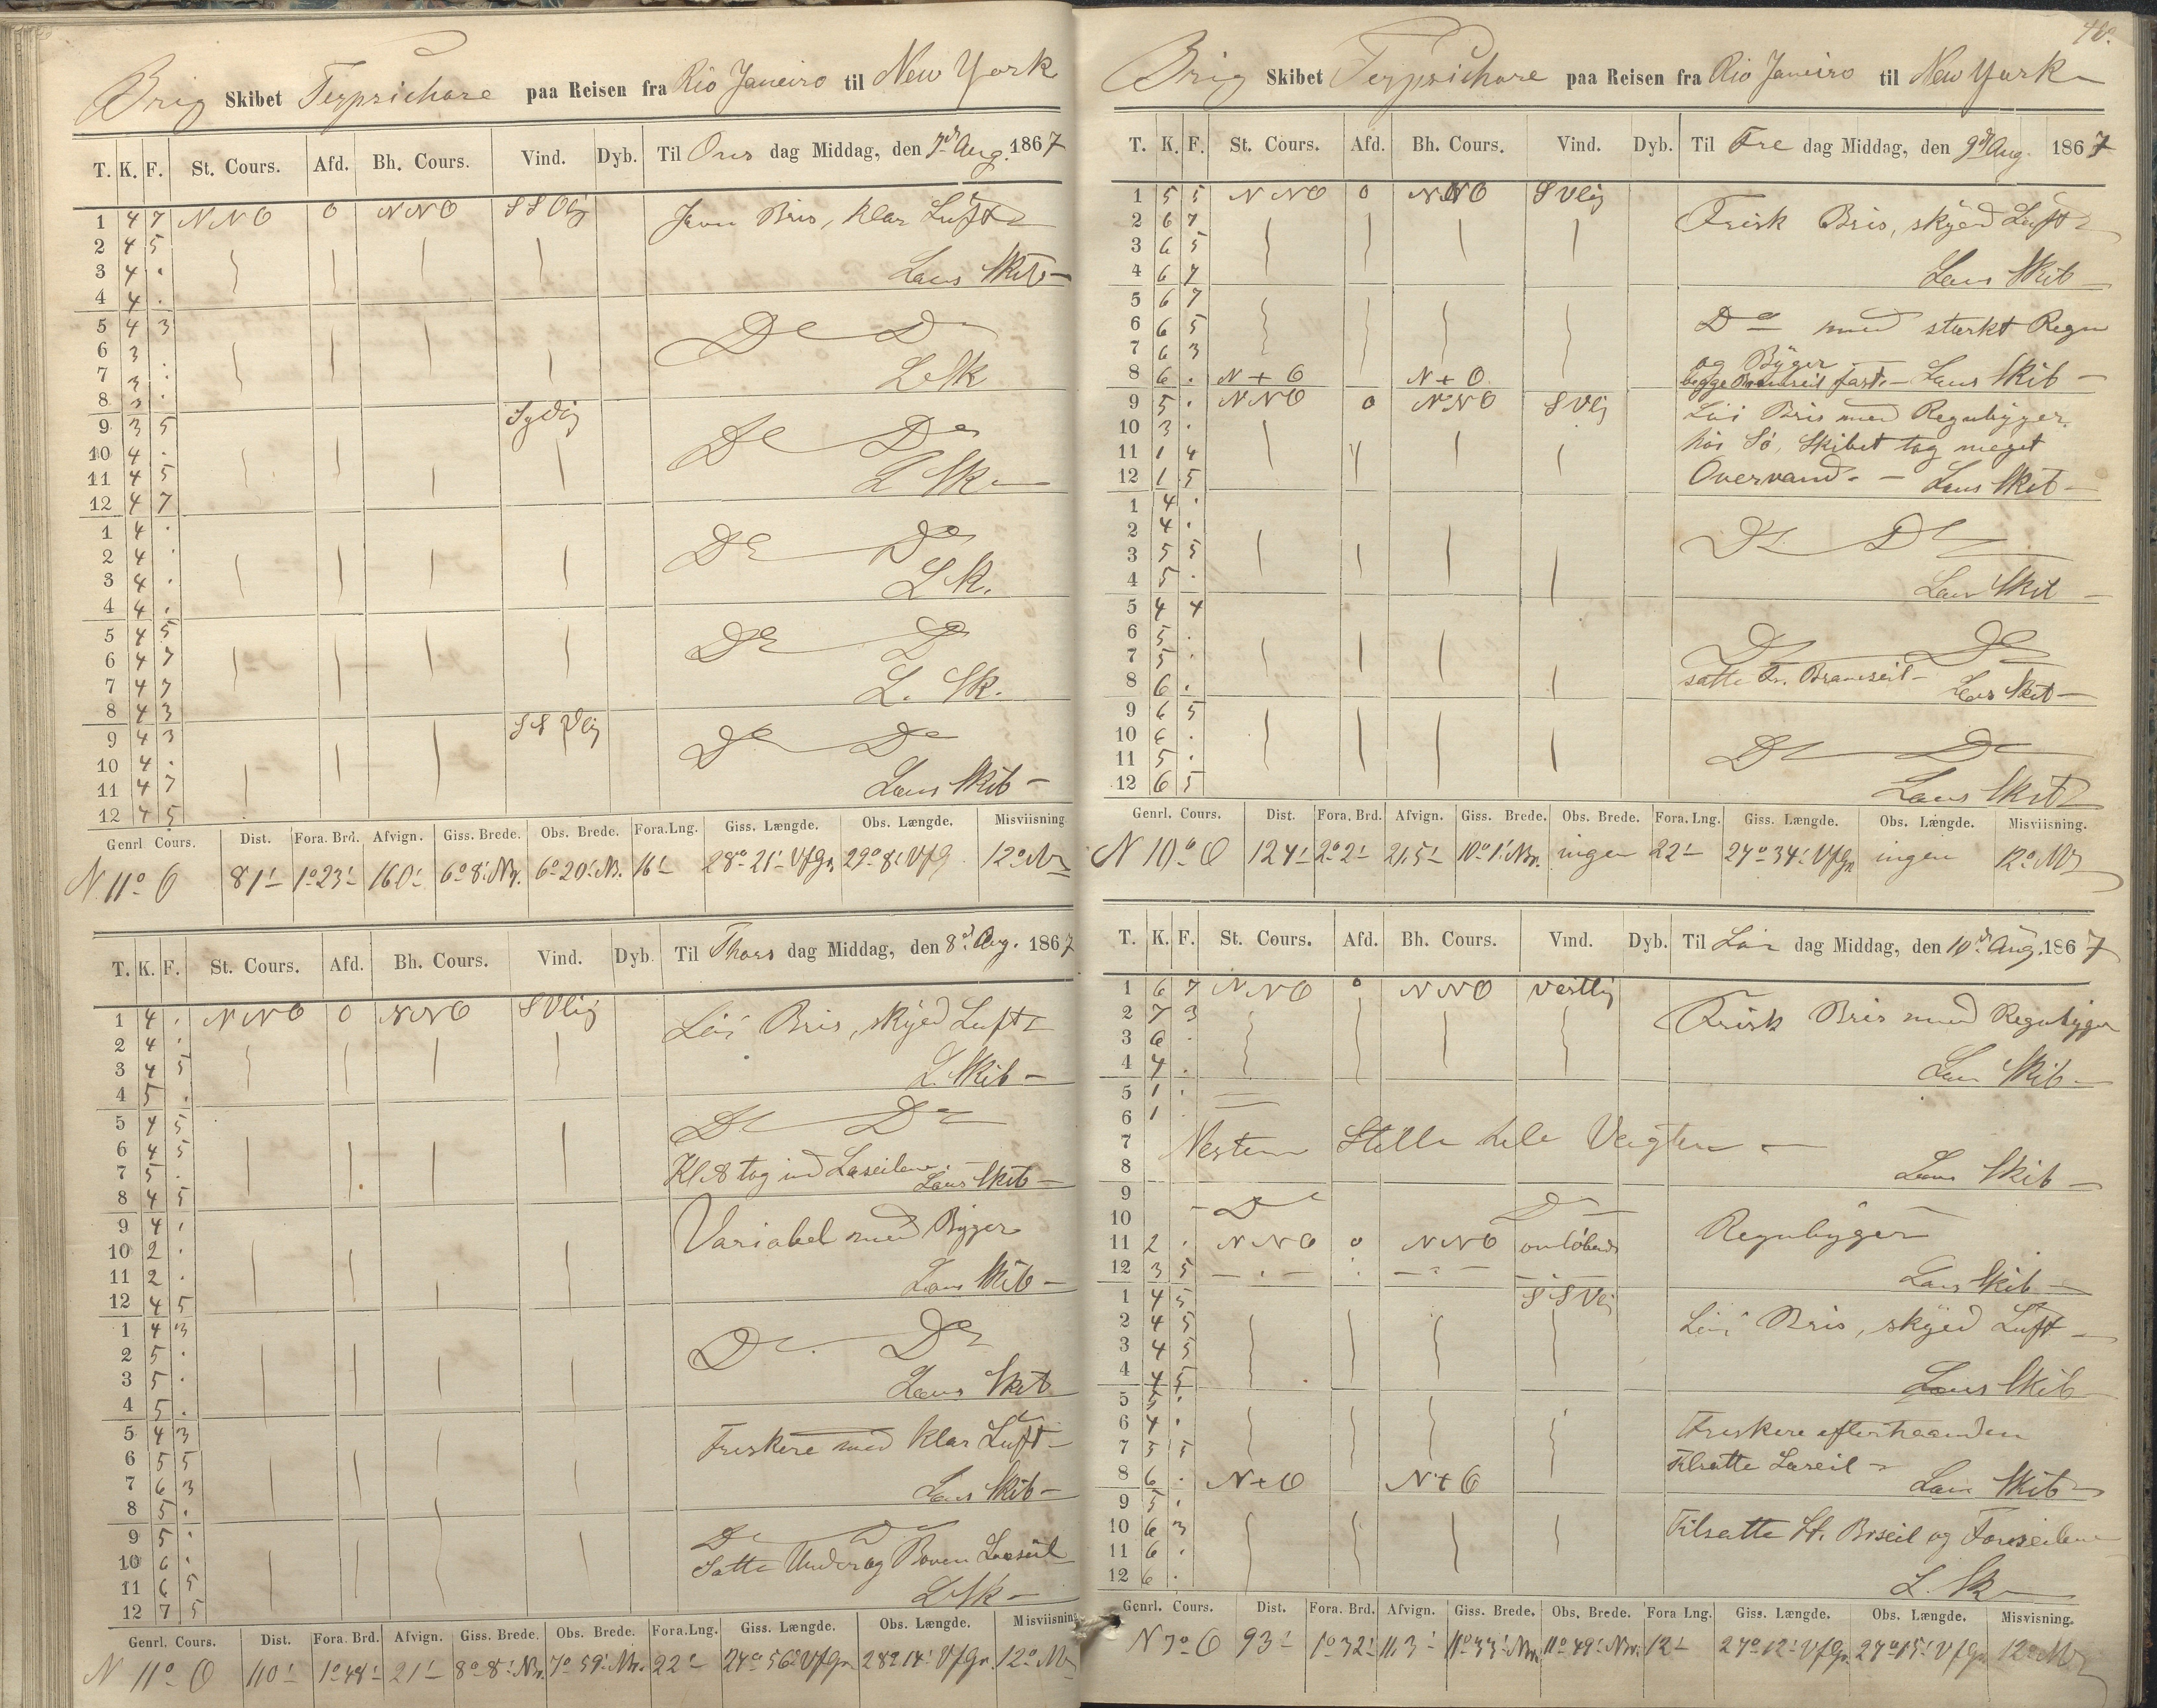 Brig Skibet Terpsichore paa Reisen fra Rio Janeiro til New York
T. K. F. St. Cours. Afd. Bh. Cours. Vind. Dyb. Til Ons dag Middag, den 7d Aug. 1867
1 4 7 NNO 0 NNO SSOlig Jevn Bris, klar Luft
2 4 5
3 4 . Læns Skib
4 4 .
5 4 3 Do Do
6 3
7 3 . L Sk
8 3 .
9 3 5 Sydlig Do Do
10 4 .
11 4 5 L Sk
12 4 7
1 4 . Do Do
2 4 .
3 4 . L Sk.
4 4 .
5 4 5 Do Do
6 4 7
7 4 7 L. Sk.
8 4 3
9 4 3 SSVlig Do Do
10 4 .
11 4 7 Læns Skib
12 4 5
Genrl. Cours. Dist. Fora. Brd. Afvign. Giss. Brede. Obs. Brede. Fora.Lng. Giss. Længde. Obs. Længde. Misviisning
N 11° O 81' 1°23' 16.0' 6°8' Nr. 6°20' Nr. 16' 28°21' VfGr. 29°8' VfG 12° NV
T. K. F. St. Cours. Afd. Bh. Cours. Vind. Dyb. Til Thors dag Middag, den 8d Aug. 1867
1 4 . NNO 0 NNO SVlig Löi Bris, skyed Luft
2 4 .
3 4 5 L. Skib
4 5 .
5 4 5 Do Do
6 4 5
7 5 . Kl. 8 tog ind Læseilene. Læns Skib
8 4 5
9 4 . Variabel med Byger
10 2 .
11 2 . Læns Skib
12 4 5
1 4 3 Do Do
2 5 .
3 5 . Læns Skib
4 5 .
5 4 3 Friskere med klar Luft
6 5 5
7 6 3 Læns Skib
8 5 .
9 5 . Do Do
10 6 . Satte Under og Boven Læseil
11 6 5 L Sk
12 7 5
Genrl. Cours. Dist. Fora. Brd. Afvign. Giss. Brede. Obs. Brede. Fora.Lng. Giss. Længde. Obs. Længde. Misviisning
N 11° O 110' 1°48' 21' 8°8' Nr. 7°59' Nr. 22' 27°56' VfGr 28°14' VfGr. 12° NV
40.
Brig Skibet Terpsichore paa Reisen fra Rio Janeiro til New York
T. K. F. St. Cours. Afd. Bh. Cours. Vind. Dyb. Til Fre dag Middag, den 9d Aug. 1867
1 5 5 NNO 0 NNO SVlig Frisk Bris, skyed Luft
2 6 7
3 6 5
4 6 7 Læns Skib
5 6 7 Do med stærkt Regn
6 6 5
7 6 3 og Byger
8 6 . N t O N t O begge Bramseil fast. Læns Skib
9 5 . NNO 0 NNO SVlig Löi Bris med Regnbyger.
10 3 . hös Sö, Skibet tog meget
11 1 4
12 1 5 Overvand. Læns Skib
1 4 . Do Do
2 4 .
3 5 5
4 5 . Læns Skib
5 4 4 Do Do
6 5 .
7 5 . satte Fr. Bramseil
8 6 . Læns Skib
9 6 5 Do Do
10 6 .
11 5 .
12 6 5 Læns Skib
Genrl. Cours. Dist. Fora. Brd. Afvign. Giss. Brede. Obs. Brede. Fora. Lng. Giss. Længde. Obs. Længde. Misviisning.
N 10° O 124' 2°2' 21,5' 10°1' Nr. ingen 22' 27°34' VfGr ingen 12° NV
T. K. F. St. Cours. Afd. Bh. Cours. Vind. Dyb. Til Lör dag Middag, den 10d Aug. 1867
1 6 7 NNO 0 NNO vestlig Frisk Bris med Regnbyger
2 7 3
3 6 .
4 4 . Læns Skib
5 1 .
6 1
7 Nesten Stille hele Vagten
8 Læns Skib
9 Do Do
10 Regnbyger
11 2 . NNO 0 NNO omlöbende
12 3 5 Læns Skib
1 4 5 SSVlig
2 4 5 Löi Bris, skyed Luft
3 4 5
4 4 5 Læns Skib
5 5 .
6 4 . Friskere efterhaanden
7 5 5 tilsatte Læseil
8 6 . N t O N t O Læns Skib
9 5 .
10 6 3 Tilsatte St. Bseil og Forseilene
11 6 .
12 6 . L. Sk
Genrl. Cours. Dist. Fora. Brd. Afvign. Giss. Brede. Obs. Brede. Fora Lng. Giss. Længde. Obs. Længde. Misvisning.
N 7° O 93' 1°32' 11,3' 11°33' Nr. 11°49' Nr. 12' 27°12' VfGr. 27°15' VfGr 12° NV